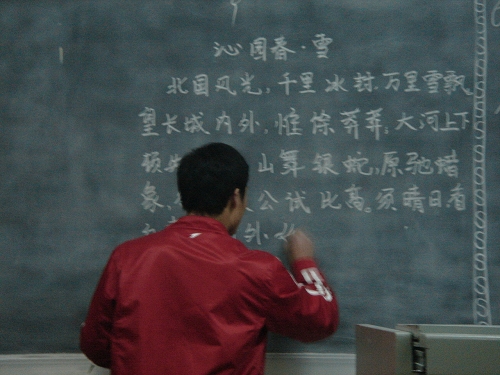 沁园春·雪
北国风光,千里冰封,万里雪飘
望长城内外,惟馀莽莽,大河上下
顿 山舞银蛇,原驰蜡
象, 公试比高。须晴日看
外